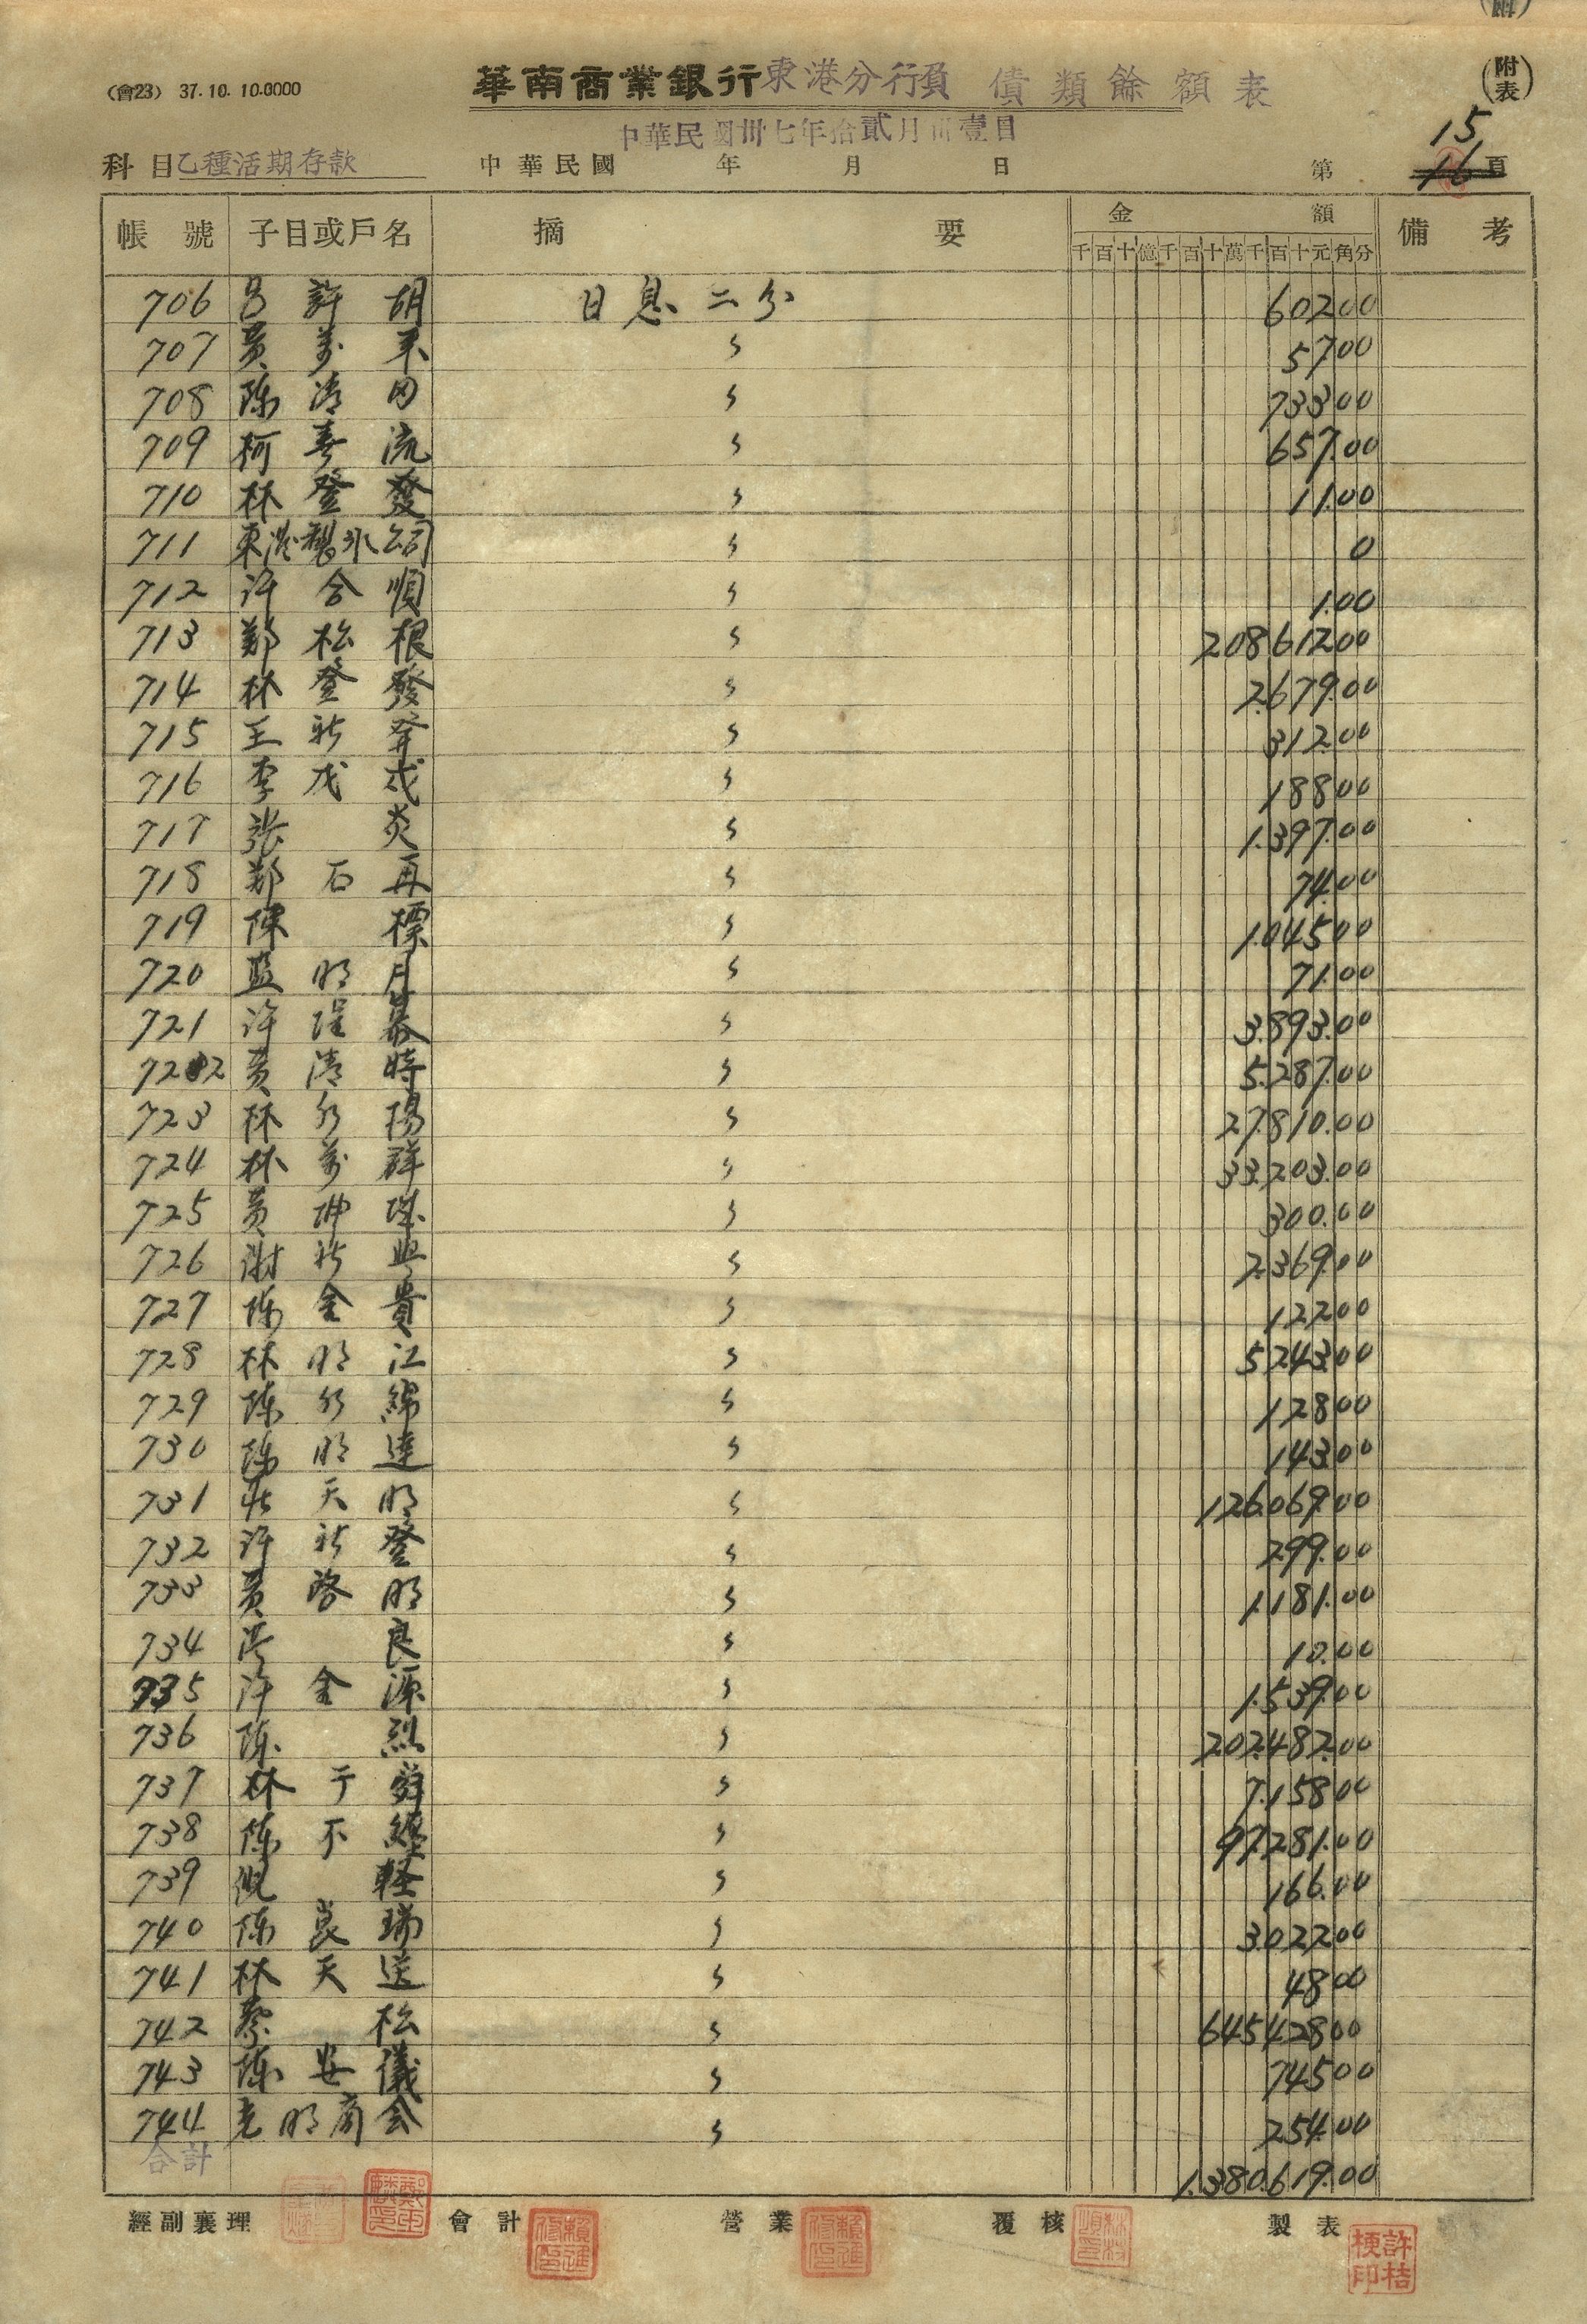 (會23) 37.10.10.0000
華南商業銀行東港分行負債類餘額表
(附表)
中華民國卅七年拾貳月卅壹日
科目乙種活期存款 中華民國 年 月 日 第 15 頁
帳號 子目或戶名 摘要 金額 備考
千百十億千百十萬千百十元角分
706 呂許胡 日息二分 602.00
707 黃萬來 〃 57.00
708 陳清 〃 733.00
709 柯壽流 〃 657.00
710 林登發 〃 11.00
711 東港製氷公司 〃 0
712 許合順 〃 1.00
713 鄭松根 〃 208612.00
714 林登發 〃 2.679.00
715 王新 〃 312.00
716 李戊戌 〃 188.00
717 張炎 〃 1.397.00
718 鄭石再 〃 74.00
719 陳標 〃 1.045.00
720 藍明月 〃 71.00
721 許 〃 3.893.00
722 黃清時 〃 5.287.00
723 林水陽 〃 27.810.00
724 林萬 〃 33.203.00
725 黃坤 〃 300.00
726 謝新興 〃 2.369.00
727 陳金貴 〃 122.00
728 林明江 〃 5243.00
729 陳水綿 〃 128.00
730 陳明達 〃 143.00
731 天明 〃 126.069.00
732 許新登 〃 299.00
733 黃啓明 〃 1.181.00
734 良 〃 10.00
735 許金源 〃 1.539.00
736 陳烈 〃 202.482.00
737 林于舜 〃 7.158.00
738 陳不纏 〃 97.281.00
739 倪輊 〃 166.00
740 陳崑瑞 〃 3.022.00
741 林天送 〃 48.00
742 蔡松 〃 645428.00
743 陳安儀 〃 745.00
744 光明商会 〃 254.00
合計 1.380.619.00
經副襄理 會計 營業 覆核 製表
許桔梗印